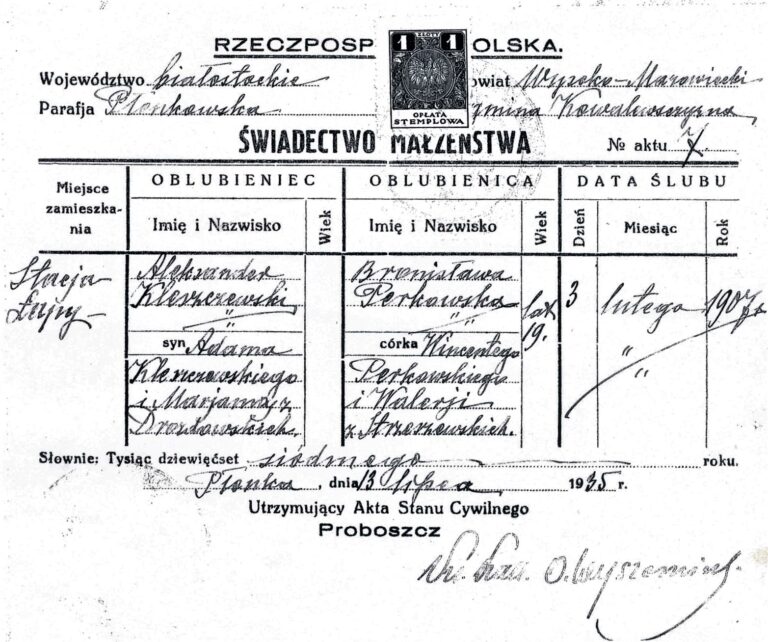 RZECZPOSP OLSKA.
1 ZŁOTY 1
Województwo białostockie owiat Wysoko-Mazowiecki
OPŁATA
STEMPLOWA
Parafja Płonkowska gmina Kowalewszczyzna
ŚWIADECTWO MAŁŻEŃSTWA № aktu 7.
Miejsce zamieszka-nia OBLUBIENIEC OBLUBIENICA DATA ŚLUBU
Imię i Nazwisko Wiek Imię i Nazwisko Wiek Dzień Miesiąc Rok
Stacja Aleksander Bronisława
Łapy Kleszczewski Perkowska lat 3 lutego 1907
„ „ „ 19. „
syn Adama córka Wincentego „
Kleszczewskiego Perkowskiego
i Marjanny z i Walerji
Drozdowskich. z Strzeszewskich.
Słownie: Tysiąc dziewięćset siódmego roku.
Płonka, dnia 13 lipca 1935 r.
Utrzymujący Akta Stanu Cywilnego
Proboszcz